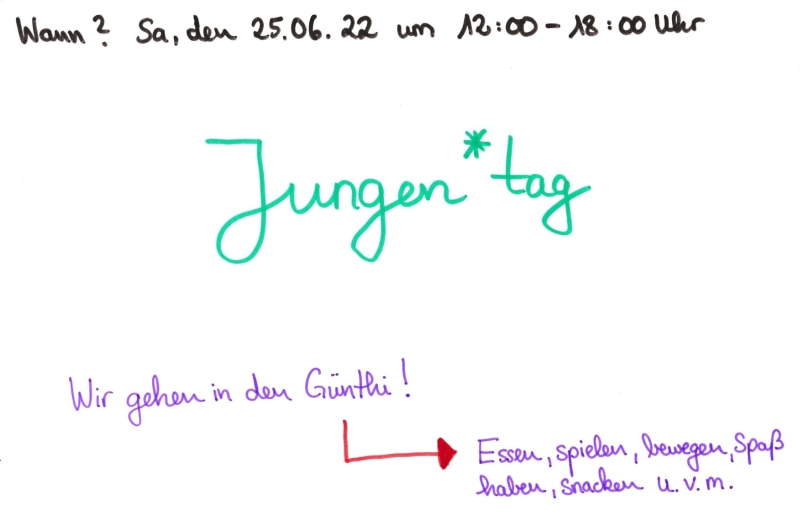 Wann? Sa, den 25.06.22 um 12:00 - 18:00 Uhr
Jungen*tag
Wir gehen in den Günthi!
Essen, spielen, bewegen, Spaß
haben, snacken u.v.m.